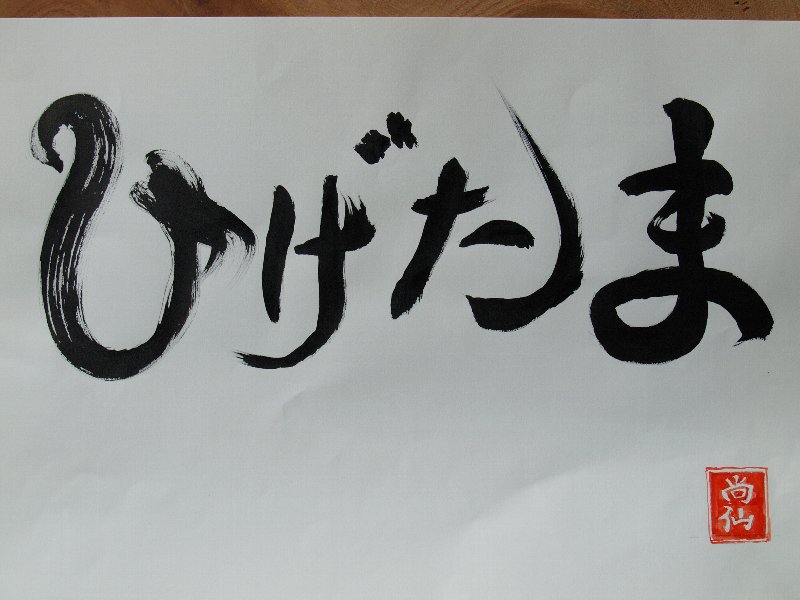 ひげたま
尚仙